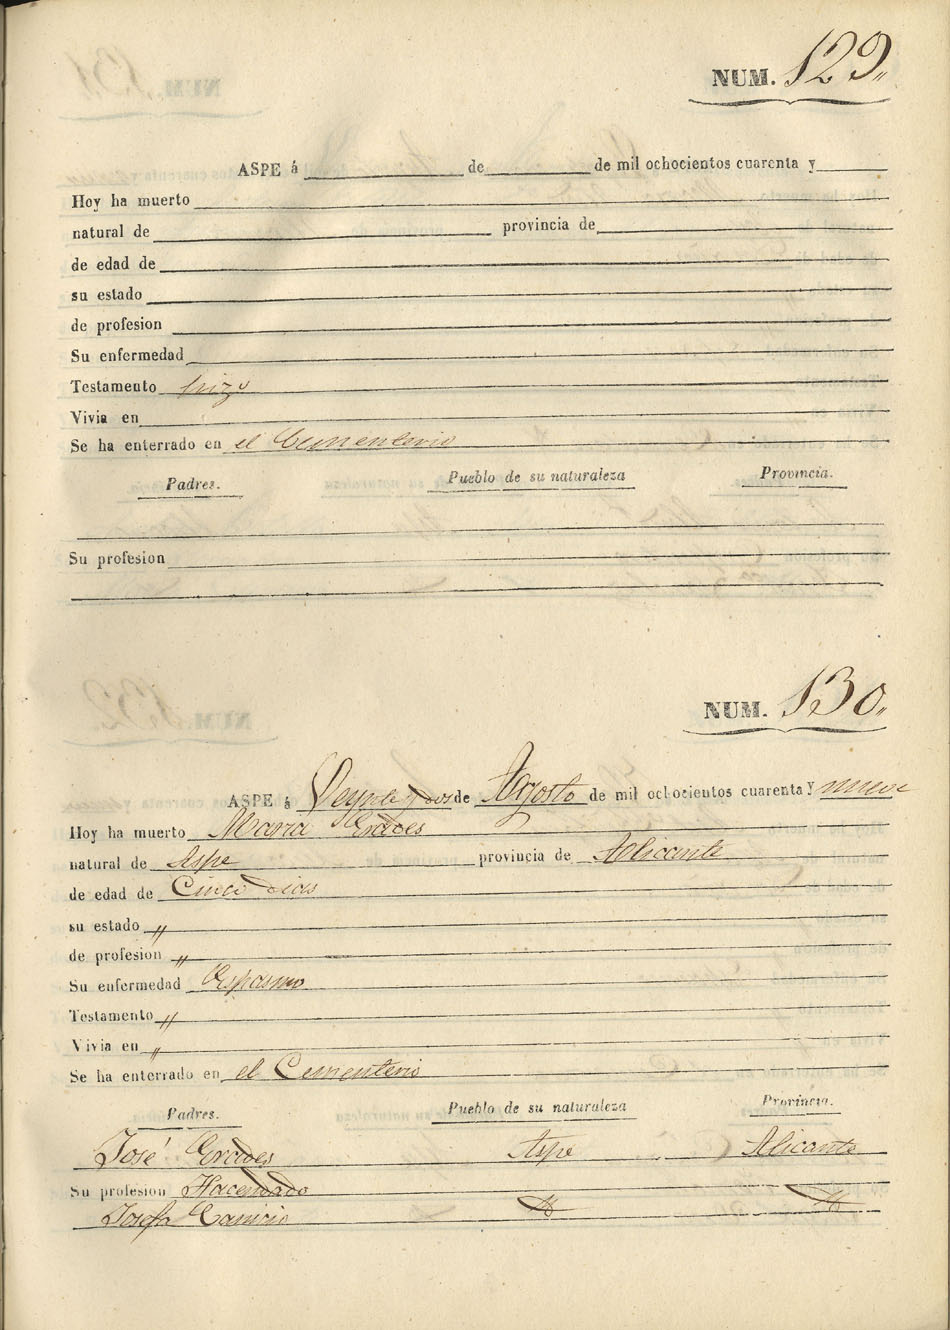 NUM. 129
ASPE á de de mil ochocientos cuarenta y
Hoy ha muerto
natural de provincia de
de edad de
su estado
de profesion
Su enfermedad
Testamento hizo
Vivia en
Se ha enterrado en el Cementerio
Padres. Pueblo de su naturaleza Provincia.
Su profesion
NUM. 130
ASPE á Veynte y dos de Agosto de mil ochocientos cuarenta y nueve
Hoy ha muerto Maria
natural de Aspe provincia de Alicante
de edad de Cinco dias
su estado "
de profesion "
Su enfermedad Espasmo
Testamento "
Vivia en "
Se ha enterrado en el Cementerio
Padres. Pueblo de su naturaleza Provincia.
José Aspe Alicante
Su profesion Hacendado
Josefa